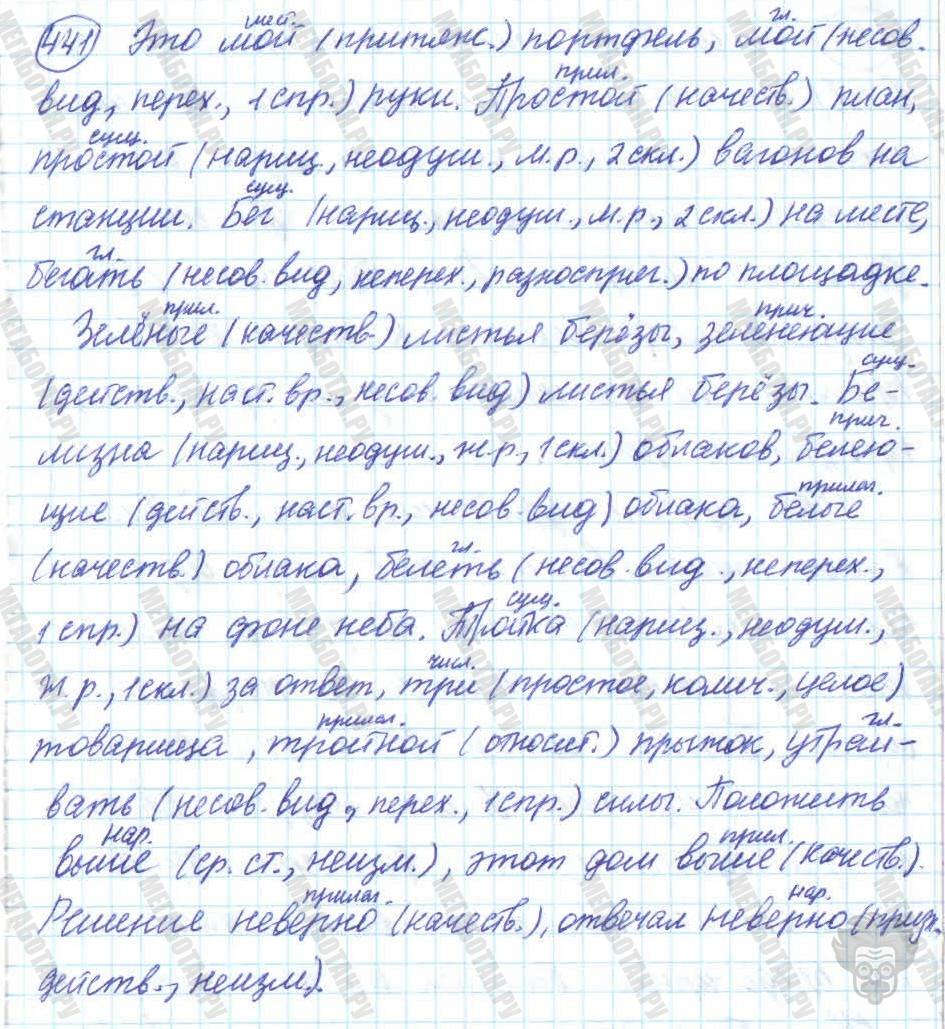 441 Это мой (притяж.) портфель, мой (несов.
мест. гл.
вид, перех., 1 спр.) руки. Простой (качеств.) план,
прил.
простой (нариц., неодуш., м.р., 2 скл.) вагонов на
сущ.
станции. Бег (нариц., неодуш., м.р., 2 скл.) на месте,
сущ.
бегать (несов. вид, неперех., разноспряг.) по площадке.
гл.
Зелёные (качеств.) листья берёзы, зеленеющие
прил. прич.
(действ., наст. вр., несов. вид) листья берёзы. Бе-
сущ.
лизна (нариц., неодуш., ж.р., 1 скл.) облаков, белею-
прич.
щие (действ., наст. вр., несов. вид) облака, белые
прилаг.
(качеств.) облака, белеть (несов. вид., неперех.,
гл.
1 спр.) на фоне неба. Тройка (нариц., неодуш.,
сущ.
ж.р., 1 скл.) за ответ, три (простое, колич., целое)
числ.
товарища, тройной (относит.) прыжок, утраи-
прилаг. гл.
вать (несов. вид, перех., 1 спр.) силы. Положить
выше (ср. ст., неизм.), этот дом выше (качеств.).
нар. прил.
Решение неверно (качеств.), отвечал неверно (призн.
прилаг. нар.
действ., неизм.).
МЕГАБОТАН.РУ